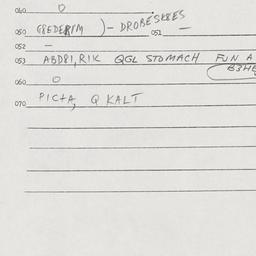 040 O
050 GREDERIM ) - DROBESKRES 051 -
052 -
053 ABDRI, RIK QGL STOMACH FUN A
060 O
070 PICTA, Q KALT